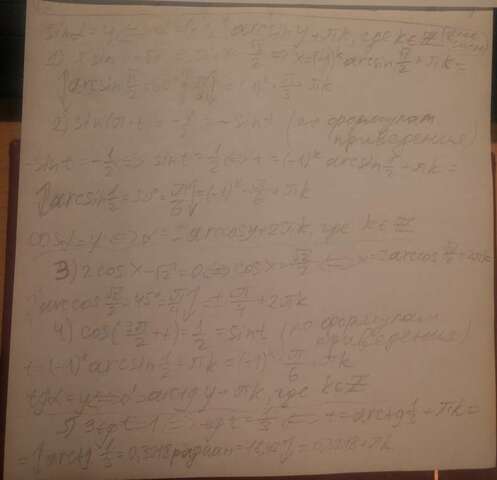 sinα = y ⇔ α = (-1)ᵏ arcsin y + πk, где k ∈ Z
1) = √3/2 ⇔ x = (-1)ᵏ arcsin √3/2 + πk =
[arcsin √3/2 = 60° = π/3] = (-1)ᵏ · π/3 + πk
2) sin(π+t) = -1/2 = -sin t (по формулам приведения)
-sin t = -1/2 ⇔ sin t = 1/2 ⇔ t = (-1)ᵏ arcsin 1/2 + πk =
[arcsin 1/2 = 30° = π/6] = (-1)ᵏ · π/6 + πk
cosα = y ⇔ α = ± arccos y + 2πk, где k ∈ Z
3) 2cos x - √2 = 0 ⇔ cos x = √2/2 ⇔ x = ± arccos √2/2 + 2πk =
[arccos √2/2 = 45° = π/4] = ± π/4 + 2πk
4) cos(3π/2 + t) = 1/2 = sin t (по формулам приведения)
t = (-1)ᵏ arcsin 1/2 + πk = (-1)ᵏ · π/6 + πk
tgα = y ⇔ α = arctg y + πk, где k ∈ Z
5) 3tg t = 1 ⇔ tg t = 1/3 ⇔ t = arctg 1/3 + πk =
= [arctg 1/3 = 0,3218 радиан = ] = 0,3218 + πk